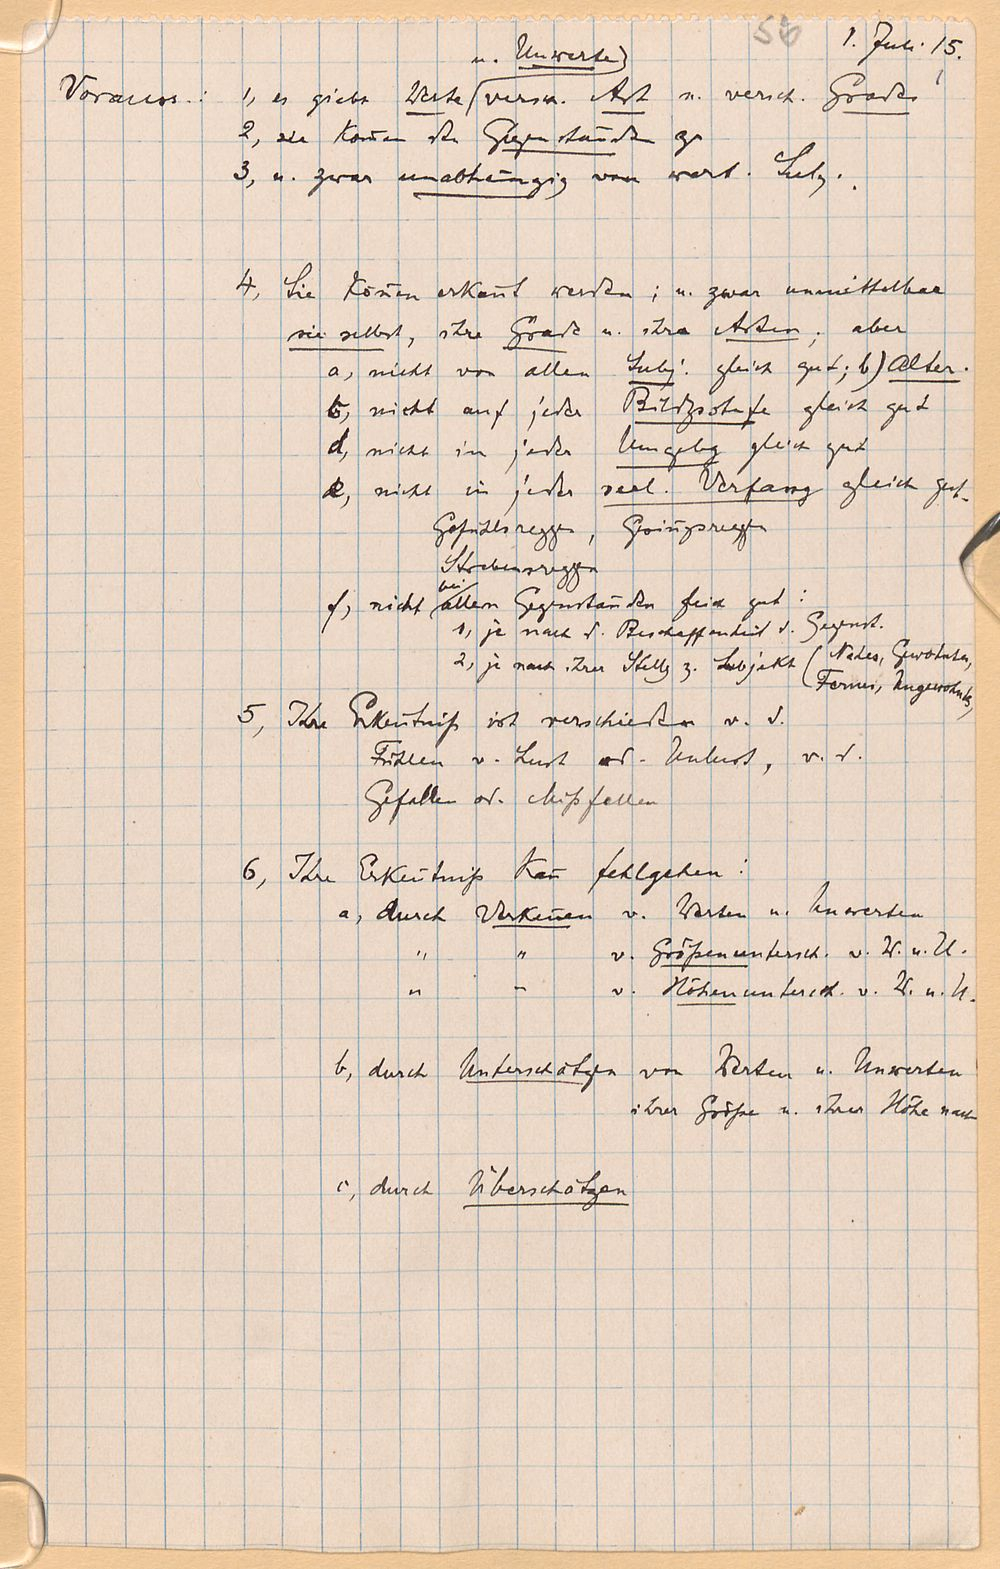 58
1. Juli 15.
u. Unwerte
Voraus.: 1, es giebt Werte (versch. Art u. versch. Grades
2, sie komen den Gegenständen zu
3, u. zwar unabhängig von wert. Subj.
4, Sie könen erkant werden; u. zwar unmittelbar
sie selbst, ihre Grade u. ihre Arten; aber
a, nicht von allen Subj. gleich gut; b) Alter.
c, nicht auf jeder Bildgsstufe gleich gut
d, nicht in jeder Umgebg gleich gut
e, nicht in jeder seel. Verfassg gleich gut.
Gefühlsreggen, Gesinngsreggen
Strebensreggen
bei
f, nicht allen Gegenständen gleich gut:
1, je nach d. Beschaffenheit d. Gegenst.
2, je nach ihrer Stellg z. Subjekt (Nahes, Gewohntes,
Fernes, Ungewohntes)
5, Ihre Erkentniß ist verschieden v. d.
Fühlen v. Lust od. Unlust, v. d.
Gefallen od. Mißfallen
6, Ihre Erkentniß kan fehlgehen:
a, durch Verkenen v. Werten u. Unwerten
" " v. Größenuntersch. v. W. u. U.
" " v. Höhenuntersch. v. W. u. U.
b, durch Unterschätzen von Werten u. Unwerten
ihrer Größe u. ihrer Höhe nach
c, durch Überschätzen